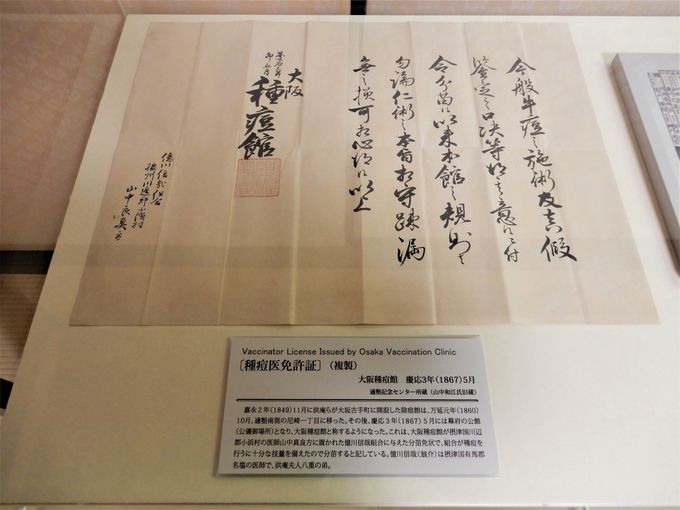 今般牛痘之施術及真假
鑒定之口決等
令分苗候以来本館之規則
勿論仁術之本旨相守疎漏
無之様可相心得候以上
慶応三年
卯五月
大阪
種痘館
億川信哉組合
摂州川辺郡小濱村
山中良真方
Vaccinator License Issued by Osaka Vaccination Clinic
［種痘医免許証］（複製）
大阪種痘館　慶応3年(1867)5月
適塾記念センター所蔵（山中和江氏旧蔵）
嘉永2年(1849)11月に洪庵らが大坂古手町に開設した除痘館は、万延元年(1860)
10月、適塾南側の尼崎一丁目に移った。その後、慶応3年(1867)5月には幕府の公館
(公儀御場所)となり、大阪種痘館と称するようになった。これは、大阪種痘館が摂津国川辺
郡小浜村の医師山中真良方に置かれた億川信哉組合に与えた分苗免状で、組合が種痘を
行うに十分な技量を備えたので分苗すると記している。億川信哉(翁介)は摂津国有馬郡
名塩の医師で、洪庵夫人八重の弟。